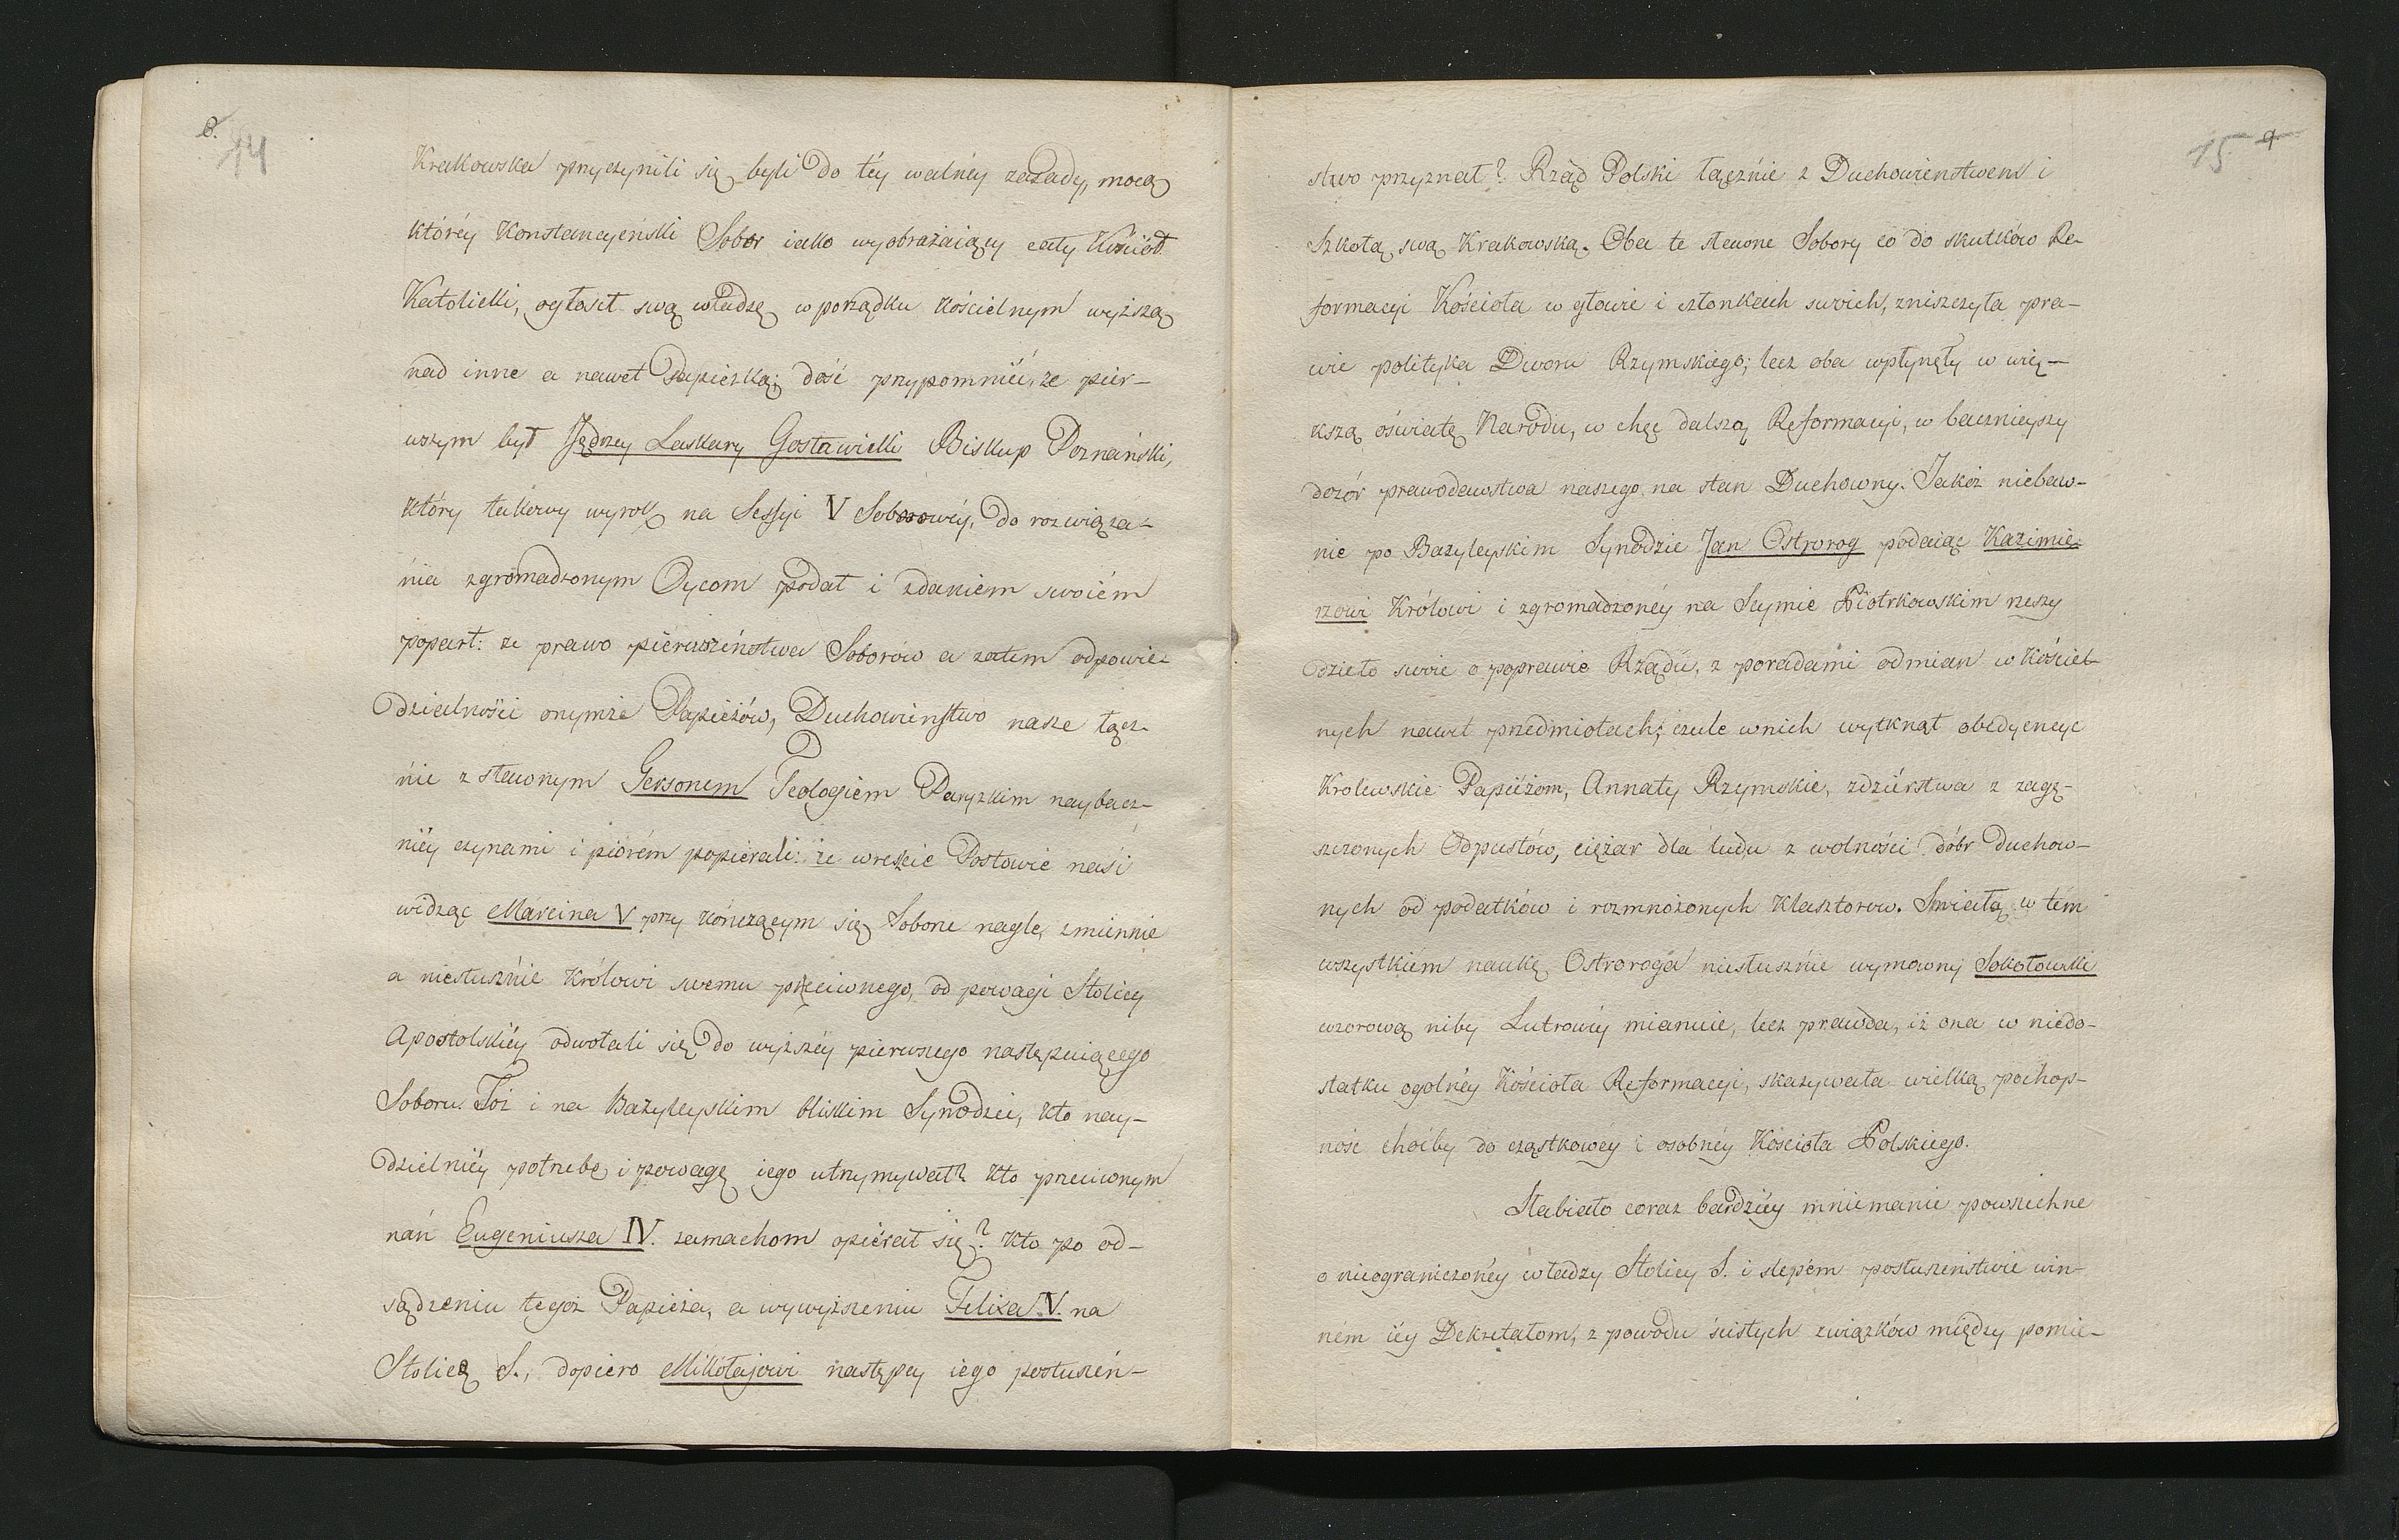 8.
14
Krakowska przyczynili się byli do téy walnéy zasady, mocą
któréy Konstancyeński Sobor iako wyobrażaiący cały Kościoł
Katolicki, ogłosił swą władzę w porządku kościelnym wyższą
nad inne a nawet Papiezką; dość przypomnić, że pier-
wszym był Jędrzey Laskary Gosławicki Biskup Poznański,
który takowy wyrok na Sessyi V Soborowéy, do rozwiąza-
nia zgromadzonym Oycom podał i zdaniem swoiém
poparł: że prawo pierwszeństwa Soborow a zatem odpowie-
dzialności onymże Papieżów, Duchowieństwo nasze łącz-
nie z sławonym Gersonem Teologiem Paryzkim naybacz-
niéy czynami i piórém popierali: że wreszcie Posłowie nasi
widząc Marcina V przy kończącym się Soborze nagle, zmiennie
a niesłusznie Królowi swemu przeciwnego, od powagi Stolicy
Apostolskiéy odwołali się do wyższéy pierwszego następuiącego
Soboru. Toż i na Bazyleyskim bliskim Synodzie, kto nay-
dzielniéy potrzebę i powagę iego utrzymywał? kto przeciwnym
nań Eugeniusza IV. zamachom opiérał się? kto po od-
sądzeniu tegoż Papieża, a wywyższeniu Felixa V. na
Stolicę S., dopiero Mikołajowi następcy iego posłuszeń-
15 9
stwo przyznał? Rząd Polski łącznie z Duchowienstwem i
Szkołą swą Krakowską. Oba te sławne Sobory co do skutków Re-
formacyi Kościoła w głowie i członkach swoich, zniszczyła pra-
wie polityka Dworu Rzymskiego; lecz oba wpłynęły w wię-
kszą oświatę Narodu, w chęć dalszą Reformacyi, w bacznieyszy
dozór prawodawstwa naszego na stan Duchowny. Jakoż niebaw-
nie po Bazyleyskim Synodzie Jan Ostrorog podaiąc Kazimie-
rzowi Królowi i zgromadzonéy na Seymie Piotrkowskim rzeszy
dzieło swoie o poprawie Rządu, z poradami odmian w Kościel-
nych nawet przedmiotach; czule w nich wytknął obedyencye
Krolewskie Papiéżom, Annaty Rzymskie, zdziérstwa z zagę-
szczonych Odpustów, ciężar dla ludu z wolności dóbr Duchow-
nych od podatków i rozmnożonych Klasztorow. Smiałą w tém
wszystkiém naukę Ostroroga niesłusznie wymowny Sokołowski
wzorową niby Lutrowéy mianuie, lecz prawda, iż ona w niedo-
statku ogolnéy Kościoła Reformacyi, skazywała wielką pochop-
ność choćby do cząstkowéy i osobnéy Kościoła Polskiego.
Słabiało coraz bardziéy mniemanie powszechne
o nieograniczonéy władzy Stolicy S. i slepém posłuszenstwie win-
ném iéy Dekretałom, z powodu ścisłych związków między pomie-